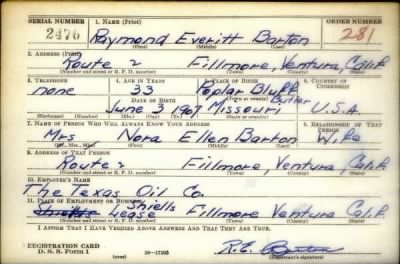 SERIAL NUMBER 1. NAME (Print) ORDER NUMBER
2476 Raymond Everitt Barton 281
(First) (Middle) (Last)
2. ADDRESS (Print)
Route 2 Fillmore, Ventura, Calif.
(Number and street or R. F. D. number) (Town) (County) (State)
3. TELEPHONE 4. AGE IN YEARS 5. PLACE OF BIRTH 6. COUNTRY OF CITIZENSHIP
none 33 Poplar Bluff
DATE OF BIRTH (Town or county) Butler
June 3 1907 Missouri U.S.A.
(Mo.) (Day) (Yr.) (State or country)
7. NAME OF PERSON WHO WILL ALWAYS KNOW YOUR ADDRESS 8. RELATIONSHIP OF THAT PERSON
Mrs Nora Ellen Barton Wife
(Mr., Mrs., Miss) (First) (Middle) (Last)
9. ADDRESS OF THAT PERSON
Route 2 Fillmore, Ventura, Calif.
(Number and street or R. F. D. number) (Town) (County) (State)
10. EMPLOYER'S NAME
The Texas Oil Co.
11. PLACE OF EMPLOYMENT OR BUSINESS
Shiells
Lease Fillmore Ventura Calif.
(Number and street or R. F. D. number) (Town) (County) (State)
I AFFIRM THAT I HAVE VERIFIED ABOVE ANSWERS AND THAT THEY ARE TRUE.
REGISTRATION CARD
D. S. S. Form 1 (over) 16—17105 R.E. Barton
(Registrant's signature)